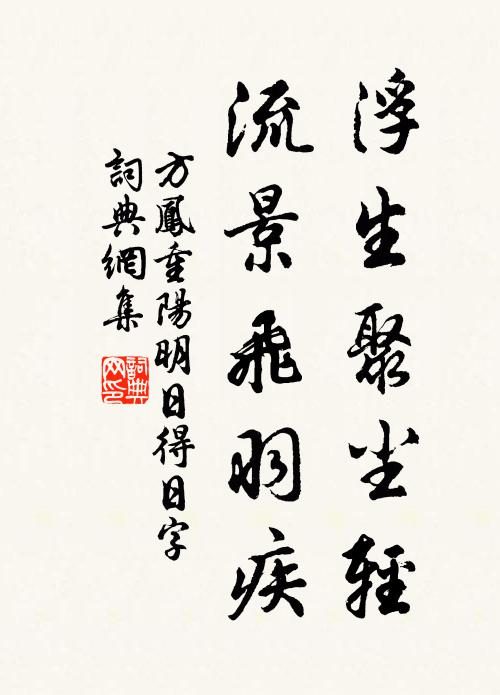 浮生聚尘輕
流景飛羽疾
方鳳重陽明日得日字
詞典網集
詞典網印